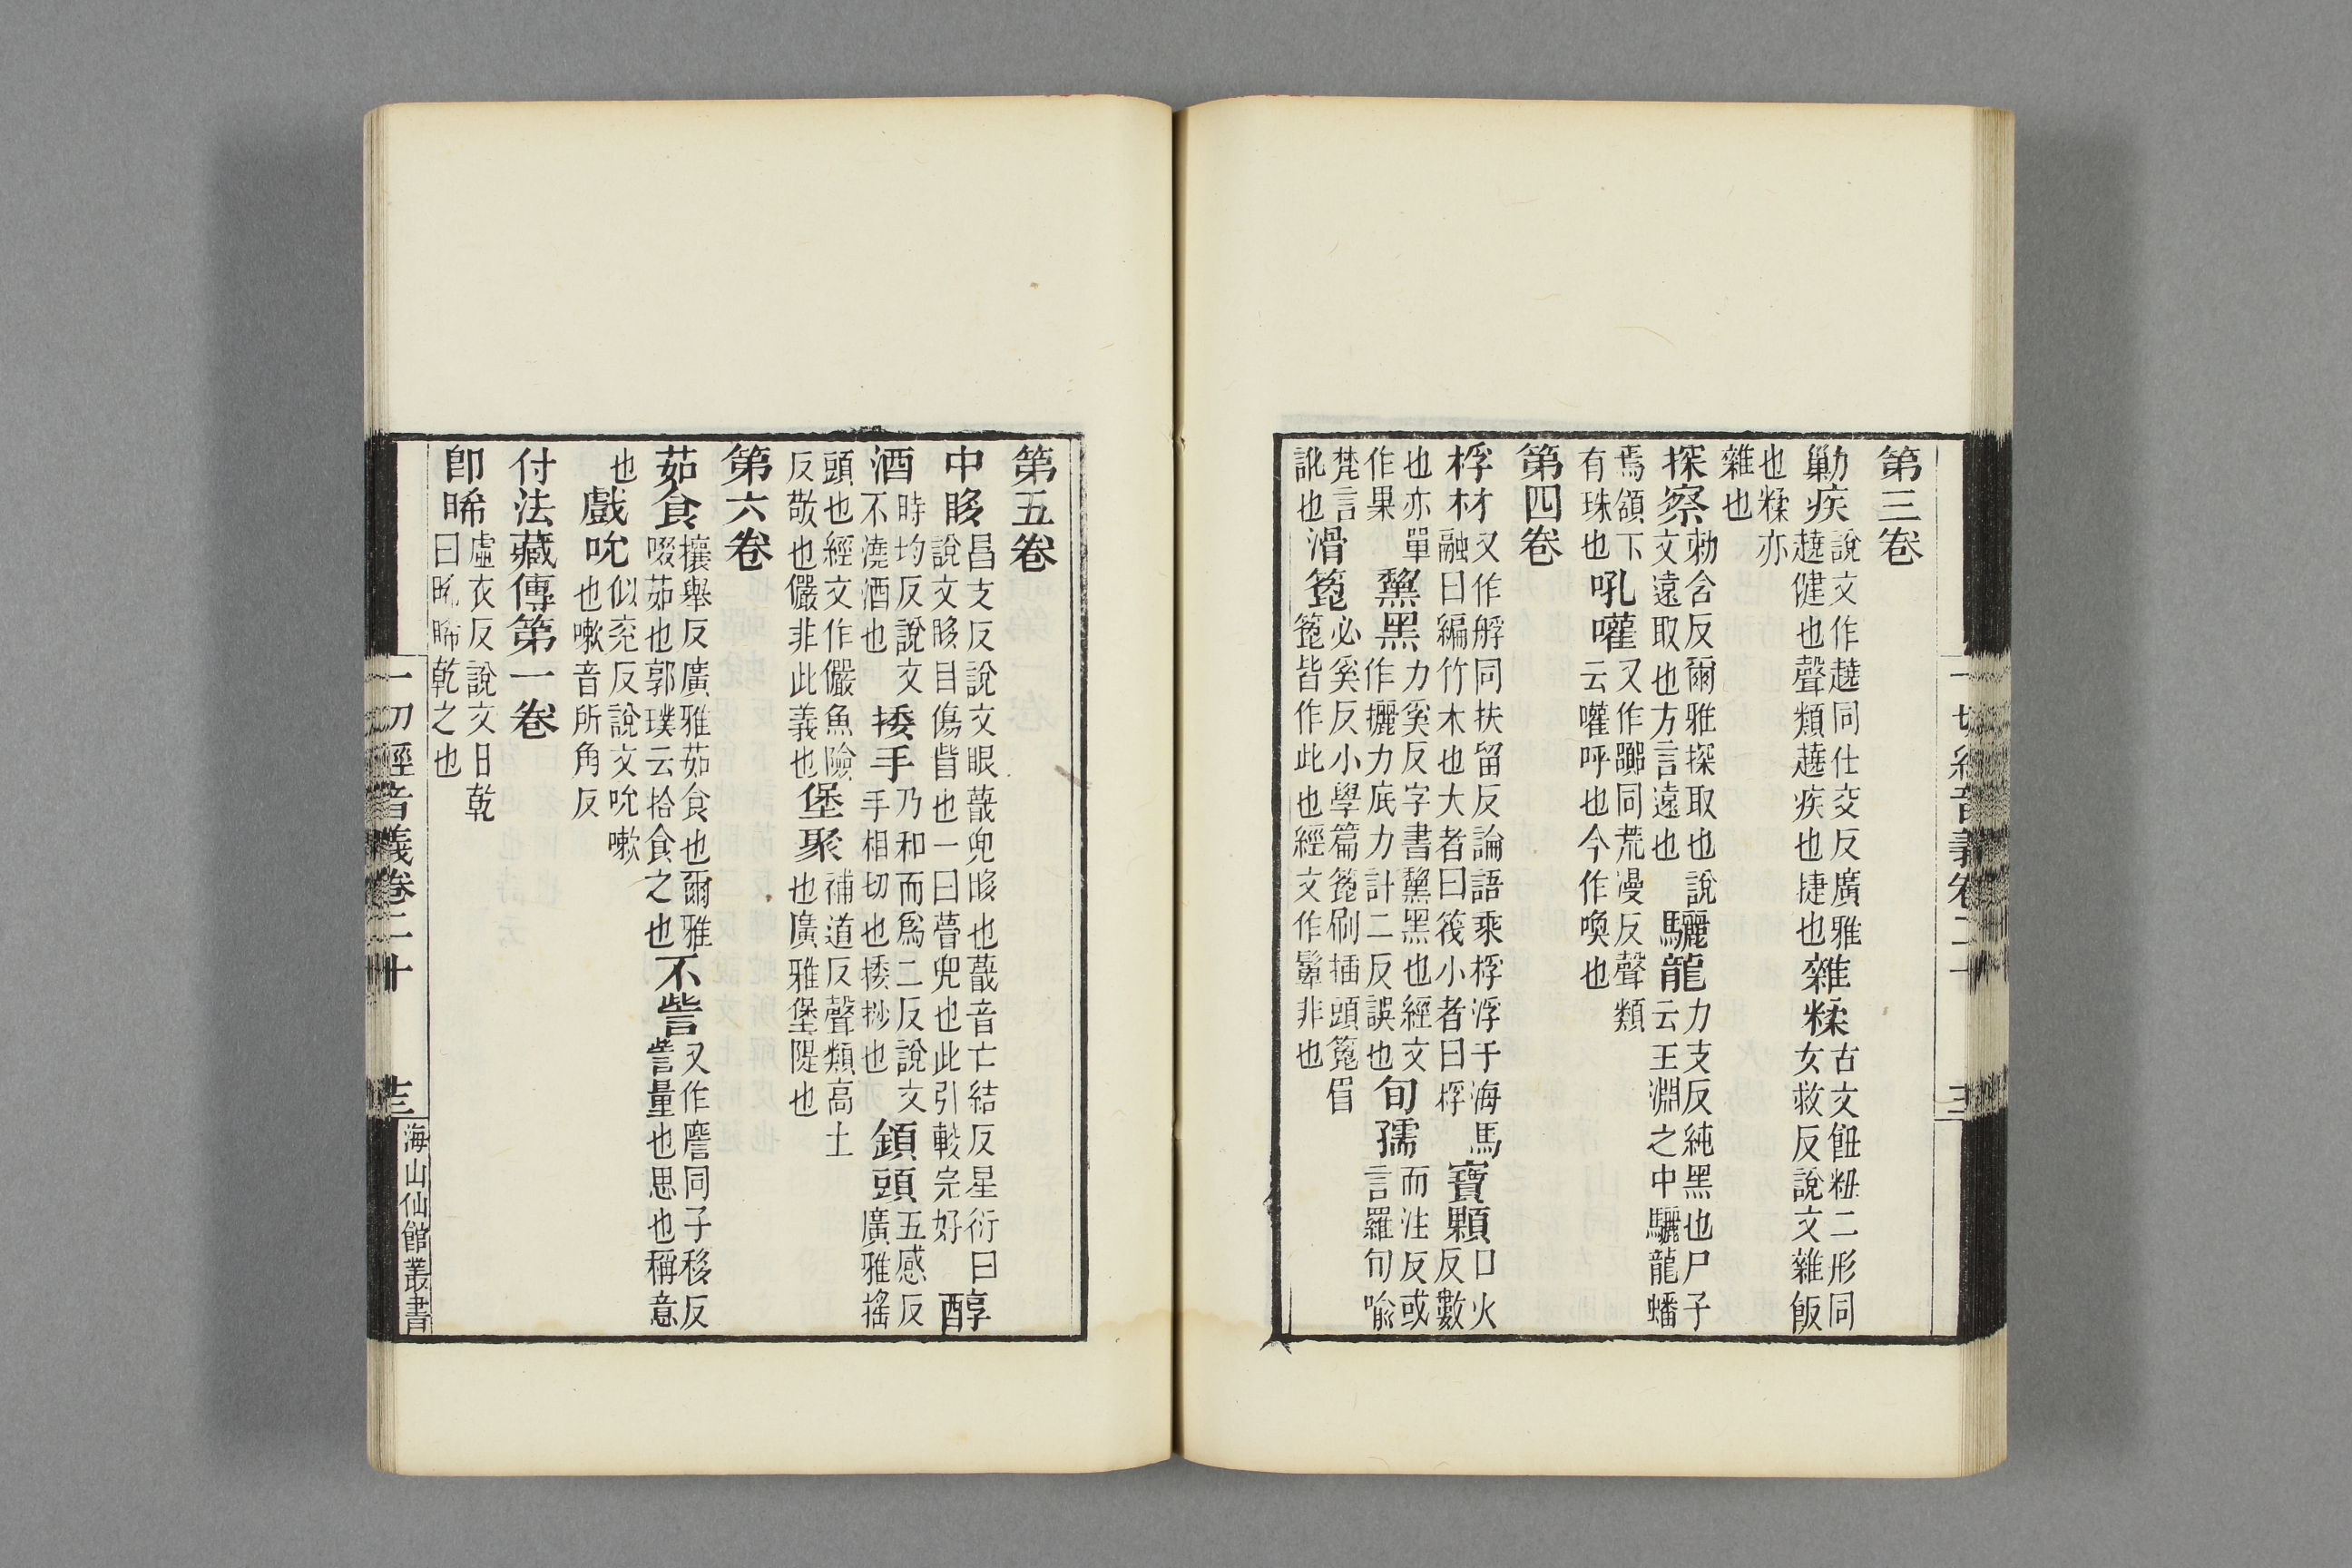 第三卷
勦疾說文作趬同仕交反廣雅趬健也聲類趬疾也捷也雜糅古文䊓粈二形同女救反說文雜飯
也糅亦雜也
探察勅含反爾雅探取也說文遠取也方言遠也驪龍力支反純黑也尸子云玉淵之中驪龍蟠
焉頷下有珠也吼嚾又作同荒漫反聲類云嚾呼也今作喚也
第四卷
桴材又作艀同扶留反論語乘桴浮于海馬融曰編竹木也大者曰筏小者曰桴寶顆口火反數
也亦單作果黧黑力奚反字書黧黑也經文作攦力底力計二反誤也旬孺而注反或言羅旬喻
梵言訛也滑箆必奚反小學篇箆刷插頭箆眉箆皆作此也經文作非也
一切經音義卷二十
第五卷
中眵昌支反說文眼蕺兜眵也蕺音亡結反星衍曰說文眵目傷眥也一曰瞢兜也此引較完好醇
酒時均反說文不澆酒也捼手乃和而爲二反說文手相切也捼挱也鎮頭五感反廣雅搖
頭也經文作儼魚險反敬也儼非此義也堡聚補道反聲類高土也廣雅堡隄也
第六卷
茹食攘舉反廣雅茹食也爾雅啜茹也郭璞云拾食之也不訾又作同子移反訾量也思也稱意
也戲吮似兖反說文吮嗽也嗽音所角反
付法藏傳第一卷
卽晞虛衣反說文日乾曰晞晞乾之也
一切經音義卷二十
海山仙館叢書